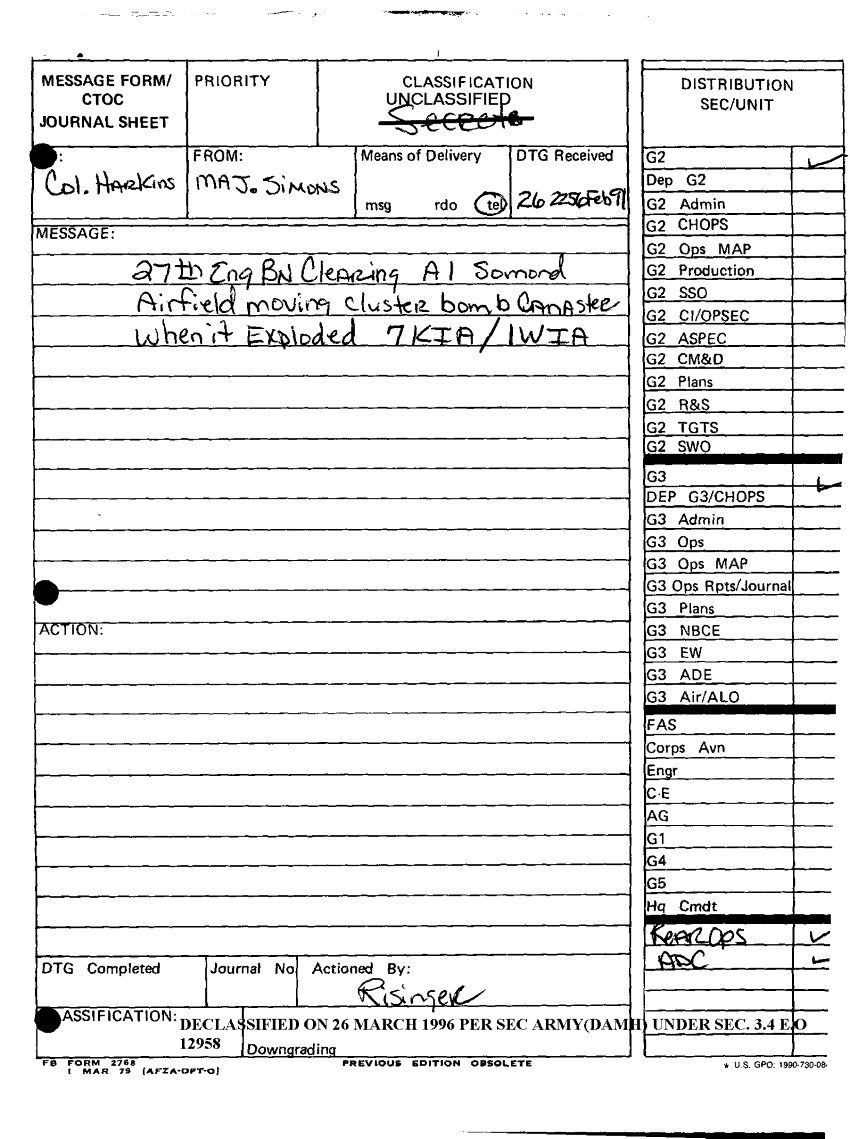 MESSAGE FORM/
CTOC
JOURNAL SHEET
PRIORITY
CLASSIFICATION
UNCLASSIFIED
DISTRIBUTION
SEC/UNIT
:
Col. HARKins
FROM:
MAJ. SiMONS
Means of Delivery
msg rdo tel
DTG Received
26 2256Feb91
MESSAGE:
27th Eng BN Clearing Al Somond
Airfield moving cluster bomb CANAstee
When it Exploded 7KIA/1WIA
ACTION:
DTG Completed
Journal No
Actioned By:
Risinger
ASSIFICATION:
DECLASSIFIED ON 26 MARCH 1996 PER SEC ARMY(DAMH) UNDER SEC. 3.4 E.O
12958
Downgrading
FB FORM 2768
1 MAR 79 (AFZA-DPT-O)
PREVIOUS EDITION OBSOLETE
★ U.S. GPO: 1990-730-08
G2
Dep G2
G2 Admin
G2 CHOPS
G2 Ops MAP
G2 Production
G2 SSO
G2 CI/OPSEC
G2 ASPEC
G2 CM&D
G2 Plans
G2 R&S
G2 TGTS
G2 SWO
G3
DEP G3/CHOPS
G3 Admin
G3 Ops
G3 Ops MAP
G3 Ops Rpts/Journal
G3 Plans
G3 NBCE
G3 EW
G3 ADE
G3 Air/ALO
FAS
Corps Avn
Engr
C-E
AG
G1
G4
G5
Hq Cmdt
REAR OPS
ADC